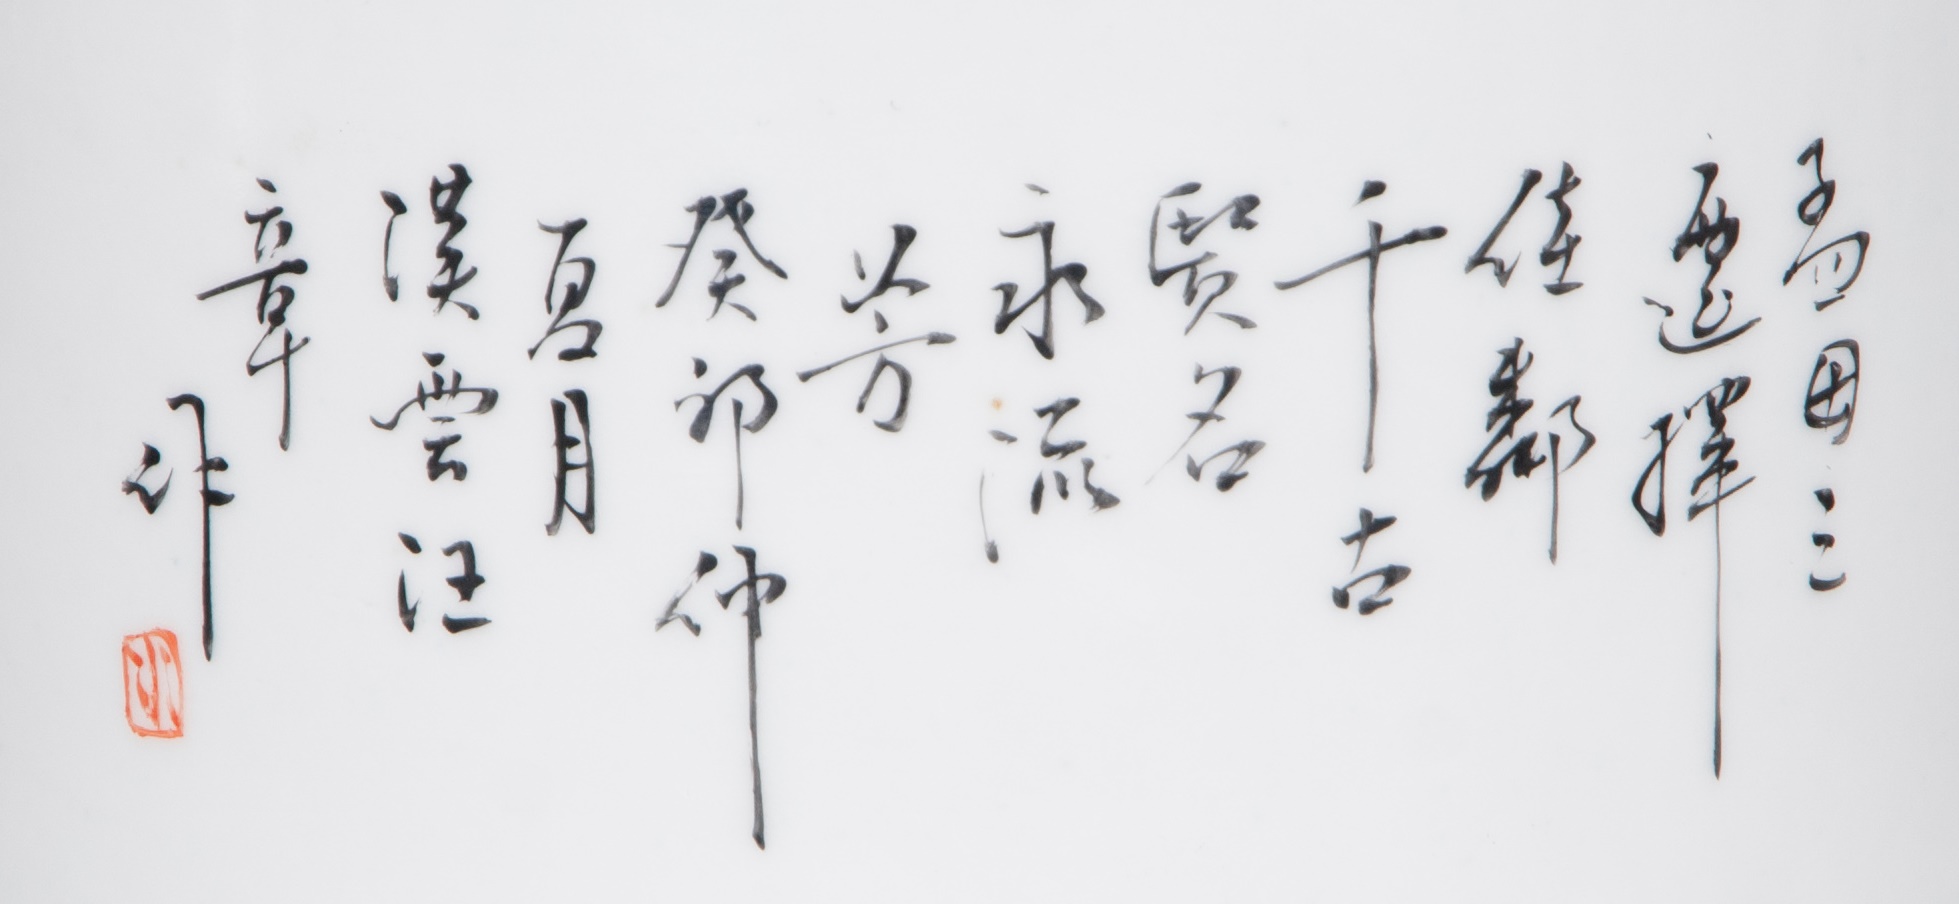 孟母三
遷擇
佳鄰
千古
賢名
永流
芳
癸卯仲
夏月
漢雲汪
章
作